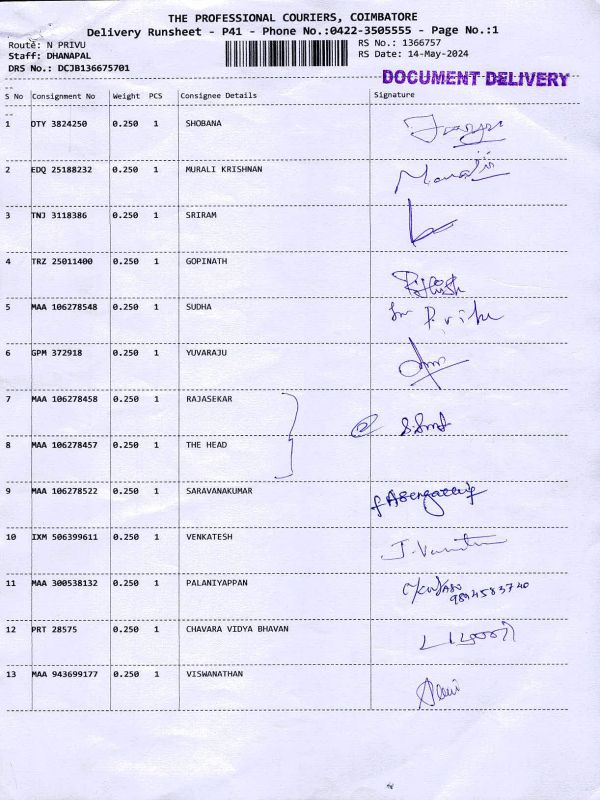 THE PROFESSIONAL COURIERS, COIMBATORE
Delivery Runsheet - P41 - Phone No.:0422-3505555 - Page No.:1
Route: N PRIVU RS No.: 1366757
Staff: DHANAPAL RS Date: 14-May-2024
DRS No.: DCJB136675701
DOCUMENT DELIVERY
S No Consignment No Weight PCS Consignee Details Signature
1 DTY 3824250 0.250 1 SHOBANA
2 EDQ 25188232 0.250 1 MURALI KRISHNAN
3 TNJ 3118386 0.250 1 SRIRAM
4 TRZ 25011400 0.250 1 GOPINATH
5 MAA 106278548 0.250 1 SUDHA
6 GPM 372918 0.250 1 YUVARAJU
7 MAA 106278458 0.250 1 RAJASEKAR
8 MAA 106278457 0.250 1 THE HEAD
9 MAA 106278522 0.250 1 SARAVANAKUMAR
10 IXM 506399611 0.250 1 VENKATESH
11 MAA 300538132 0.250 1 PALANIYAPPAN
9894583740
12 PRT 28575 0.250 1 CHAVARA VIDYA BHAVAN
13 MAA 943699177 0.250 1 VISWANATHAN